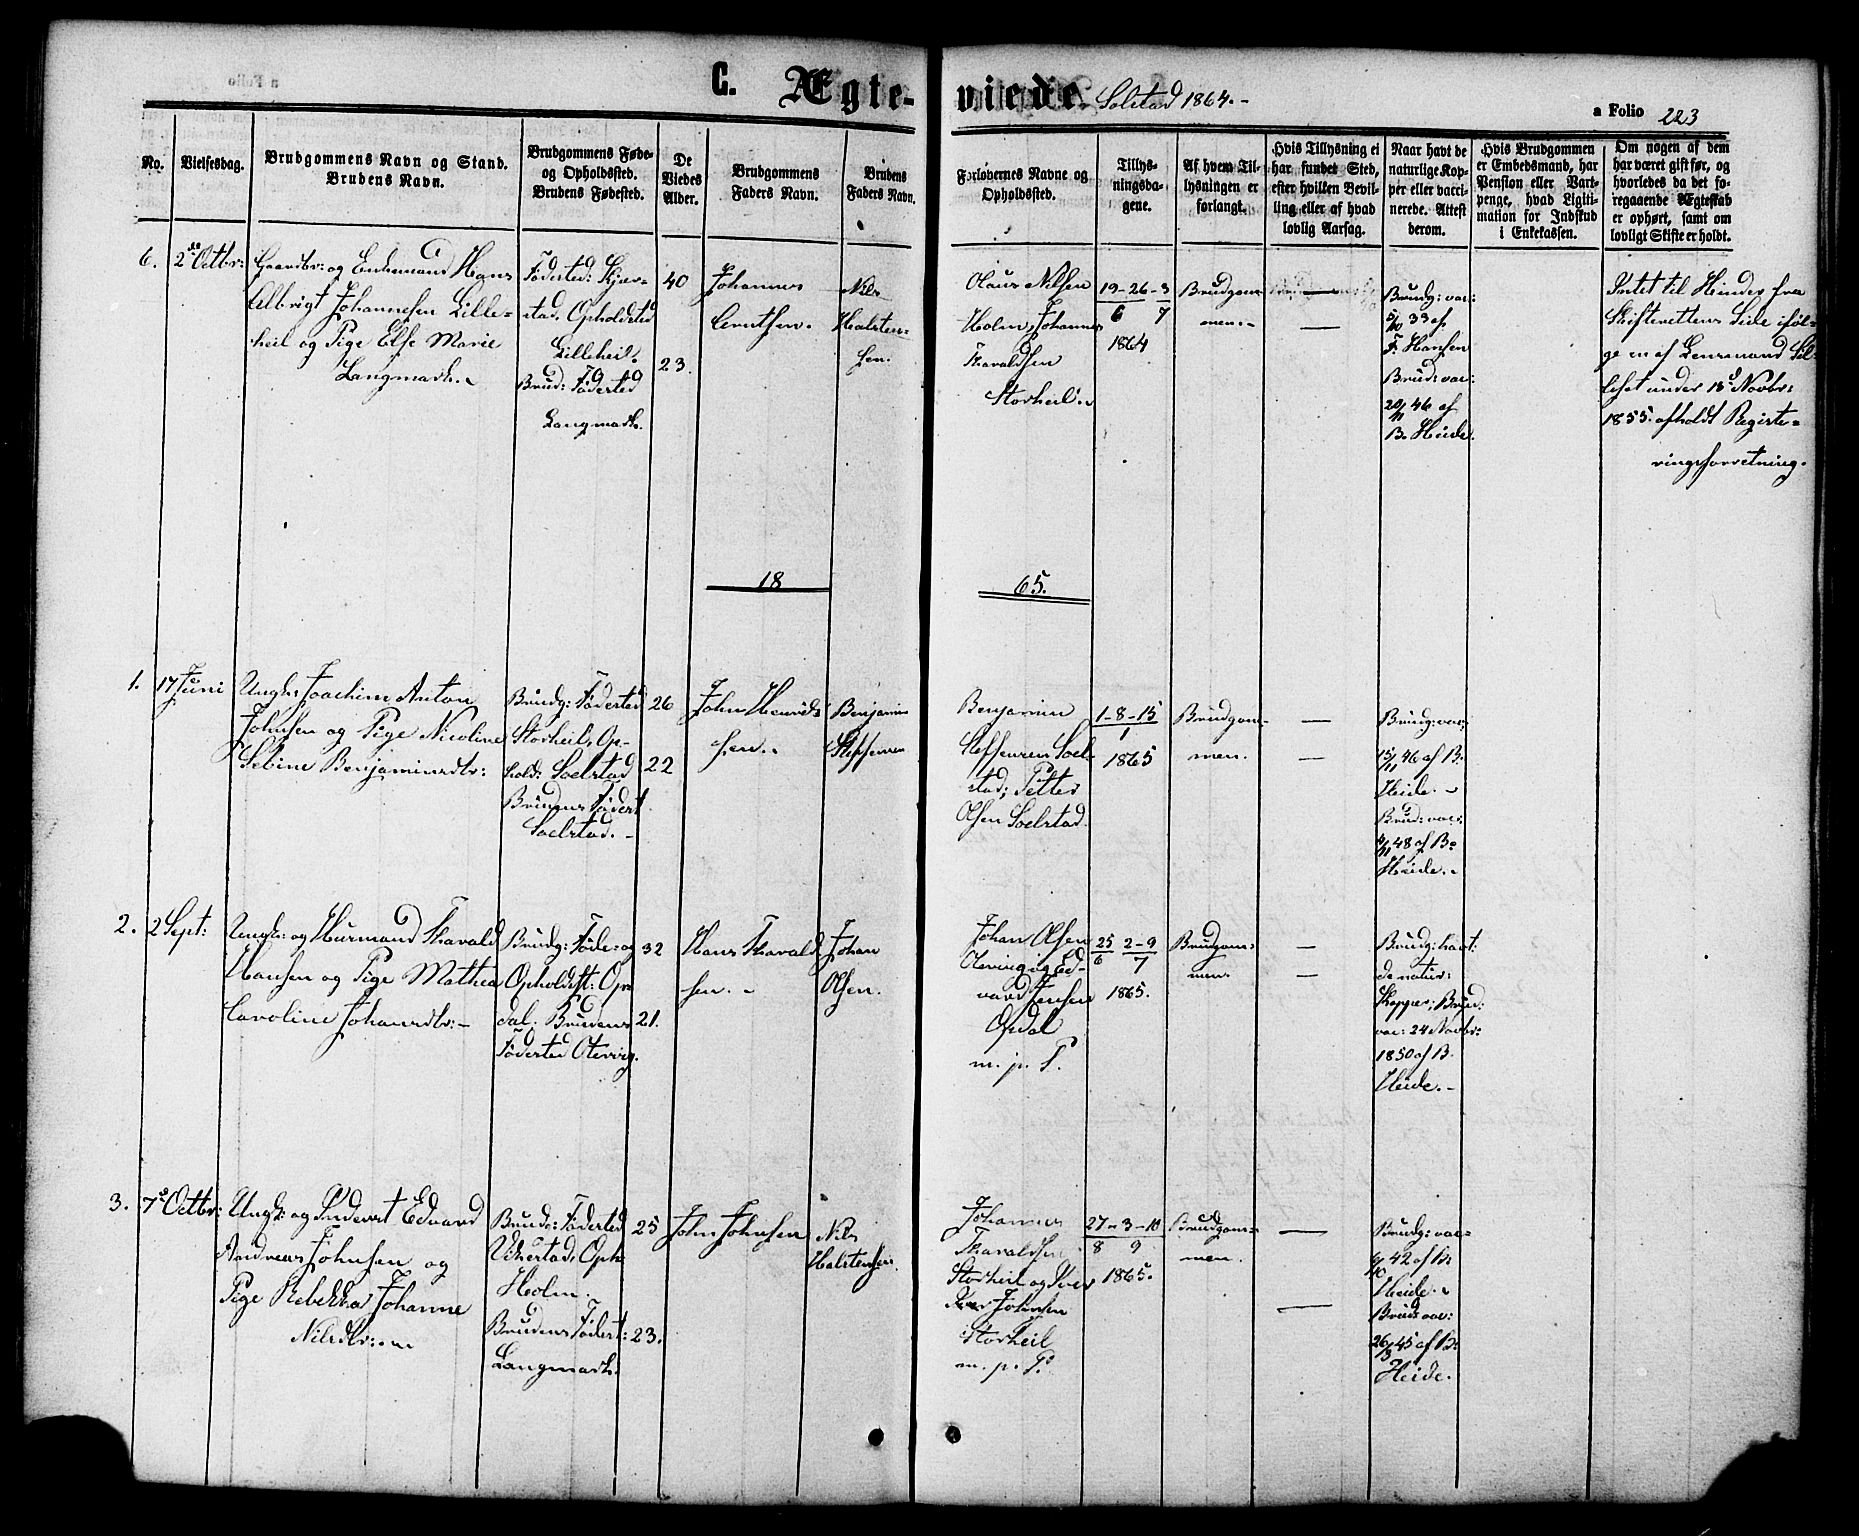 C. Ægte-
viede. Solstad 1864.-
a Folio 223
No.
Vielsesdag.
Brudgommens Navn og Stand.
Brudens Navn.
Brudgommens Føde-
og Opholdssted.
Brudens Fødested.
De
Viedes
Alder.
Brudgommens
Faders Navn.
Brudens
Faders Navn.
Forlovernes Navne og
Opholdssted.
Tillys-
ningsda-
gene.
Af hvem Til-
lysningen er
forlangt.
Hvis Tillysning ei
har fundet Sted,
efter hvilken Bevil-
ling eller af hvad
lovlig Aarsag.
Naar havt de
naturlige Kop-
per eller vacci-
nerede. Attest
derom.
Hvis Brudgommen
er Embedsmand, har
Pension eller Vart-
penge, hvad Ligiti-
mation for Indskud
i Enkekassen.
Om nogen af dem
har været gift før, og
hvorledes da det fo-
regaaende Ægteskab
er ophørt, samt om
lovligt Skifte er holdt.
6.
2de Octbr:
Gaardbr: og Enkemand Hans
Albrigt Johannesen Lille-
heil og Pige Else Marie
Langmark.
Fødested: Skjær-
stad, Opholdsted
Lilleheil.
Brud: Fødested
Langmark.
40
23.
Johannes
Cnutsen.
Nils
Halsten-
sen.
Claus Nilsen
Holm, Johannes
Thavaldsen
Storheil.
19-26-3
6 7
1864
Brudgom-
men.-
—
—
Brudg: vac:
5/10 33 af
F. Hansen
Brud: vac:
20/11 46 af
B. Heide.
Intet til Hinder fra
Skifterettens Side iføl-
ge en af Lensmand
under 18de Novbr:
1855 afholdt Registe-
ringsforretning.
18
65.
1.
17 Juni
Ungk: Joachim Anton
Johnsen og Pige Nicoline
Sebine Benjaminsdtr:
Brudg: Fødested
Storheil, Op-
hold: Soelstad
Brudens Fødest.
Soelstad.-
26
22
John Henrids
sen.
Benjamin
Steffensen
Benjamin
Steffensen Soel-
stad; Petter
Olsen Soelstad.
1-8-15
1
1865
Brudgom-
men.
—
—
Brudg: vac:
15/11 46 af B.
Heide.-
Brud: vac:
/11 48 af B.
Heide.
2.
2 Sept:
Ungk: og Huusmand Thavald
Hansen og Pige Mathea
Caroline Johansdtr:-
Brudg: Føde- og
Opholdst: Op-
dal. Brudens
Fødested Otervig.
32
21.
Hans Thavald
sen.-
Johan
Olsen.
Johan Olsen
Otervig og Ed-
vard Jensen
Opdal
m. p. P.
25 2-9
6 7
1865.
Brudgom-
men
—
—
Brudg: havt
de natur:
Kopper; Brud:
vac: 24 Novbr:
1850 af B.
Heide.-
3.
7de Octbr:
Ungk: og Inderst Edvard
Andreas Johnsen og
Pige Rebekka Johanne
Nilsdtr:
Brudg: Fødested
Vikestad, Oph:
Holm.
Brudens Fødest:
Langmark.
25
23.
John Johnsen
Nils
Halstensen.
Johannes
Thavaldsen
Storheil og Iver
Johnsen
Storheil
m. p. P.
27-3-10
8 9
1865.
Brudgom-
men.
—
—
Brudg: vac-
/10 42 af B.
Heide.
Brud: vac:
26/8 45 af B.
Heide.